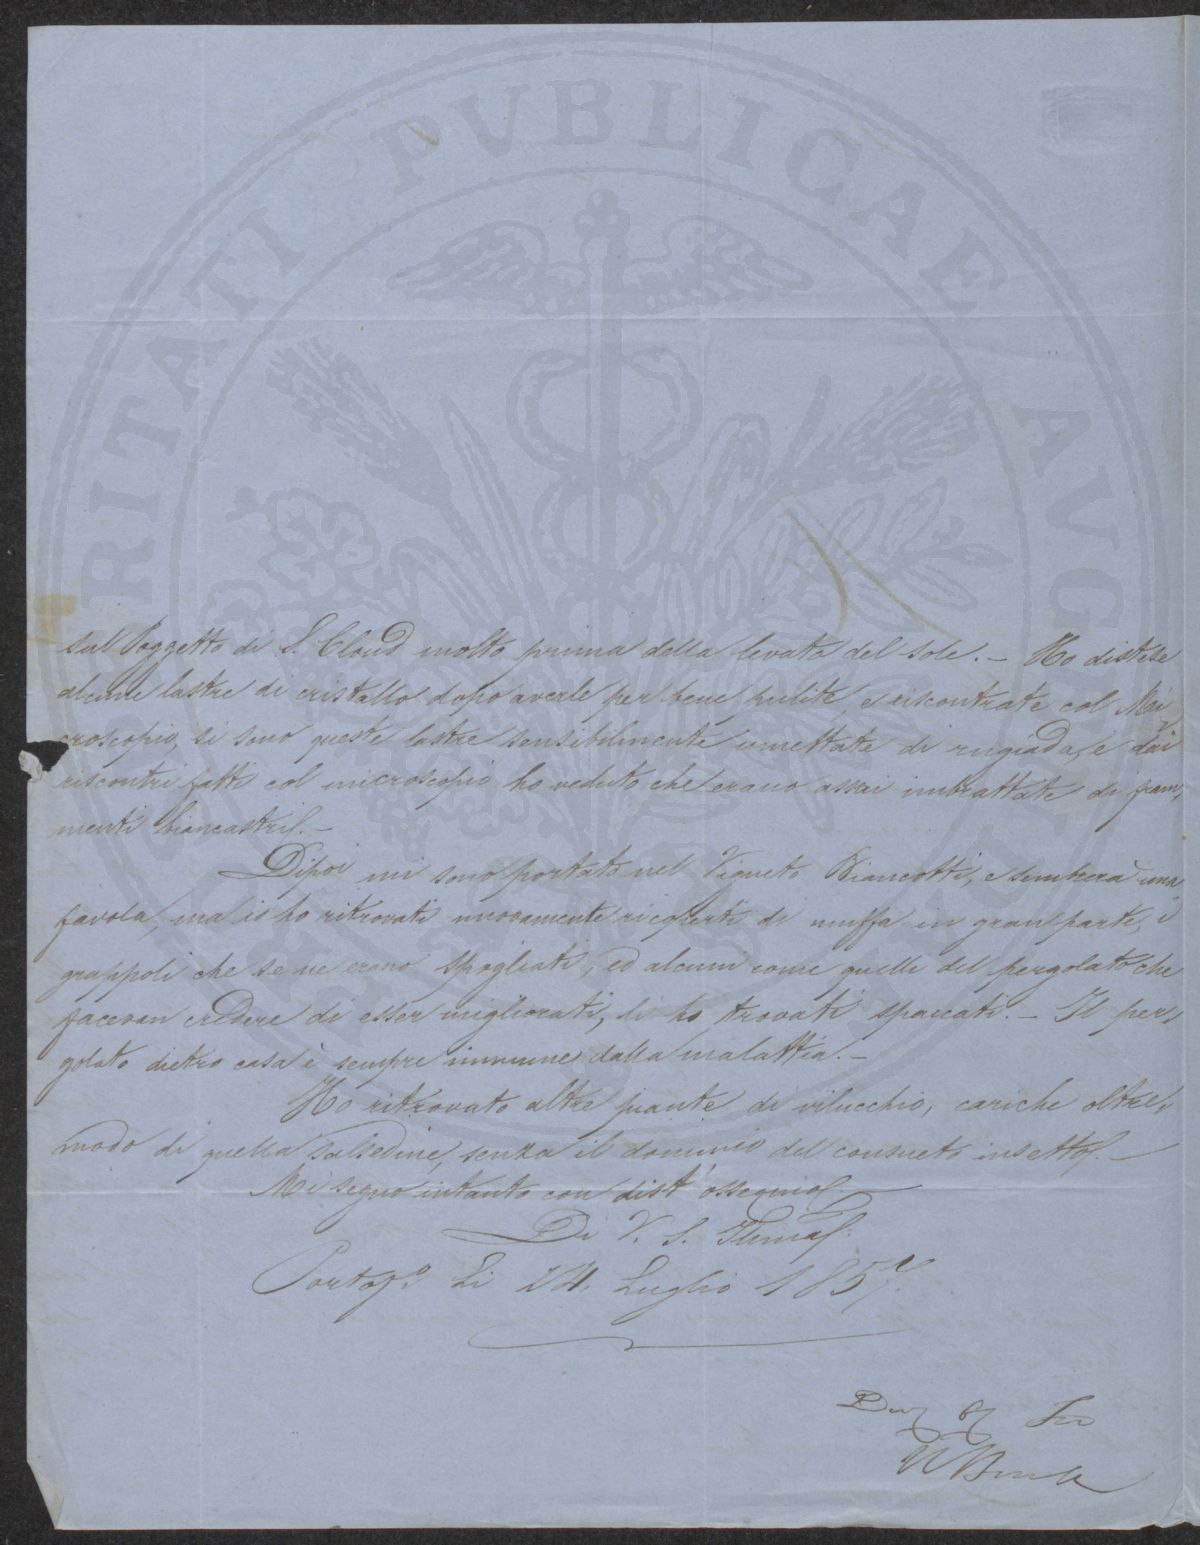 PROSPERITATI PUBLICAE AVGENDAE
sul Poggetto di S. Cloud molto prima della levata del sole. – Ho distese
alcune lastre di cristallo dopo averle per bene pulite, e riscontrate col Mi
croscopio, si sono queste lastre sensibilmente umettate di rugiada, e dai
riscontri fatti col microscopio ho veduto che erano assai imbrattate di fram,
menti biancastri. –
Dipoi mi sono portato nel Vigneto Biancotti, e sembrerà una
favola, ma io ho ritrovati nuovamente ricoperti di muffa in gran parte, i
grappoli che se ne erano spogliati, ed alcuni come quelli del pergolato che
facevan credere di esser migliorati, li ho trovati spaccati. – Il per,
golato dietro casa è sempre immune dalla malattia. –
Ho ritrovato altre piante di vilucchio, cariche oltre,
modo di quella salsedine, senza il dominio del consueto insetto. –
Mi segno intanto con dist.º ossequio
Di V. S. Illma.
Portof.º Li 24. Luglio 1857.